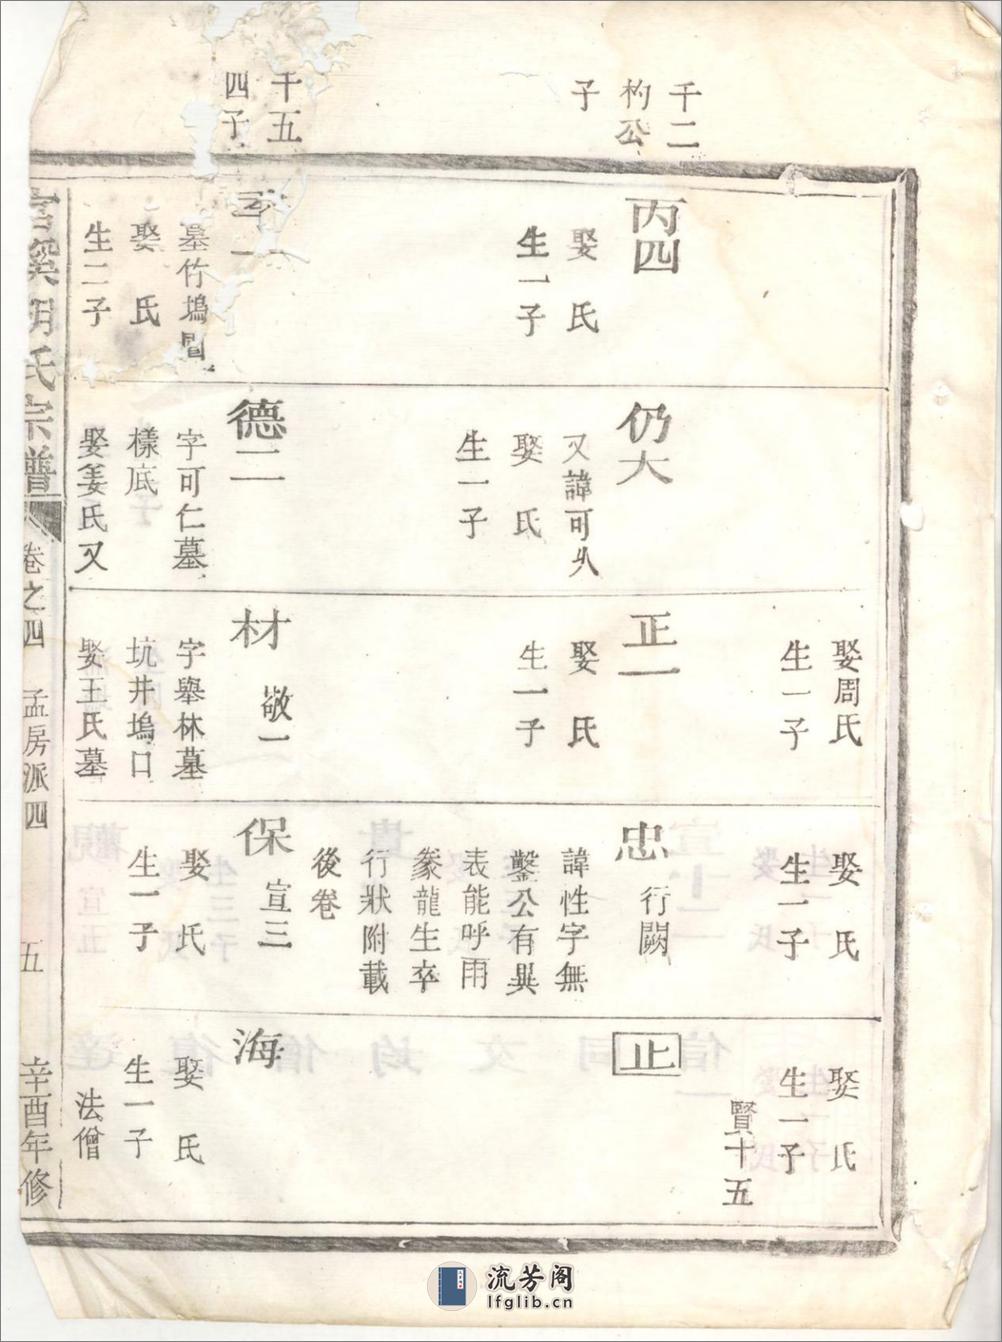 千二
杓公
子
千五
四子
丙四
娶　氏
生一子
一
墓竹塢
娶　氏
生二子
仍大
又諱可
娶　氏
生一子
德二
字可仁墓
樣底
娶姜氏又
娶周氏
生一子
正一
娶　氏
生一子
材
敬一
字舉林墓
坑井塢口
娶王氏墓
娶　氏
生一子
忠
行闕
諱性字無
鑿公有異
表能呼雨
豢龍生卒
行狀附載
後卷
保
宣三
娶　氏
生一子
娶　氏
生一子
賢十五
止
海
娶　氏
生一子
法僧
溪胡氏宗譜
卷之四
孟房派四
五
辛酉年修
流芳阁
lfglib.cn